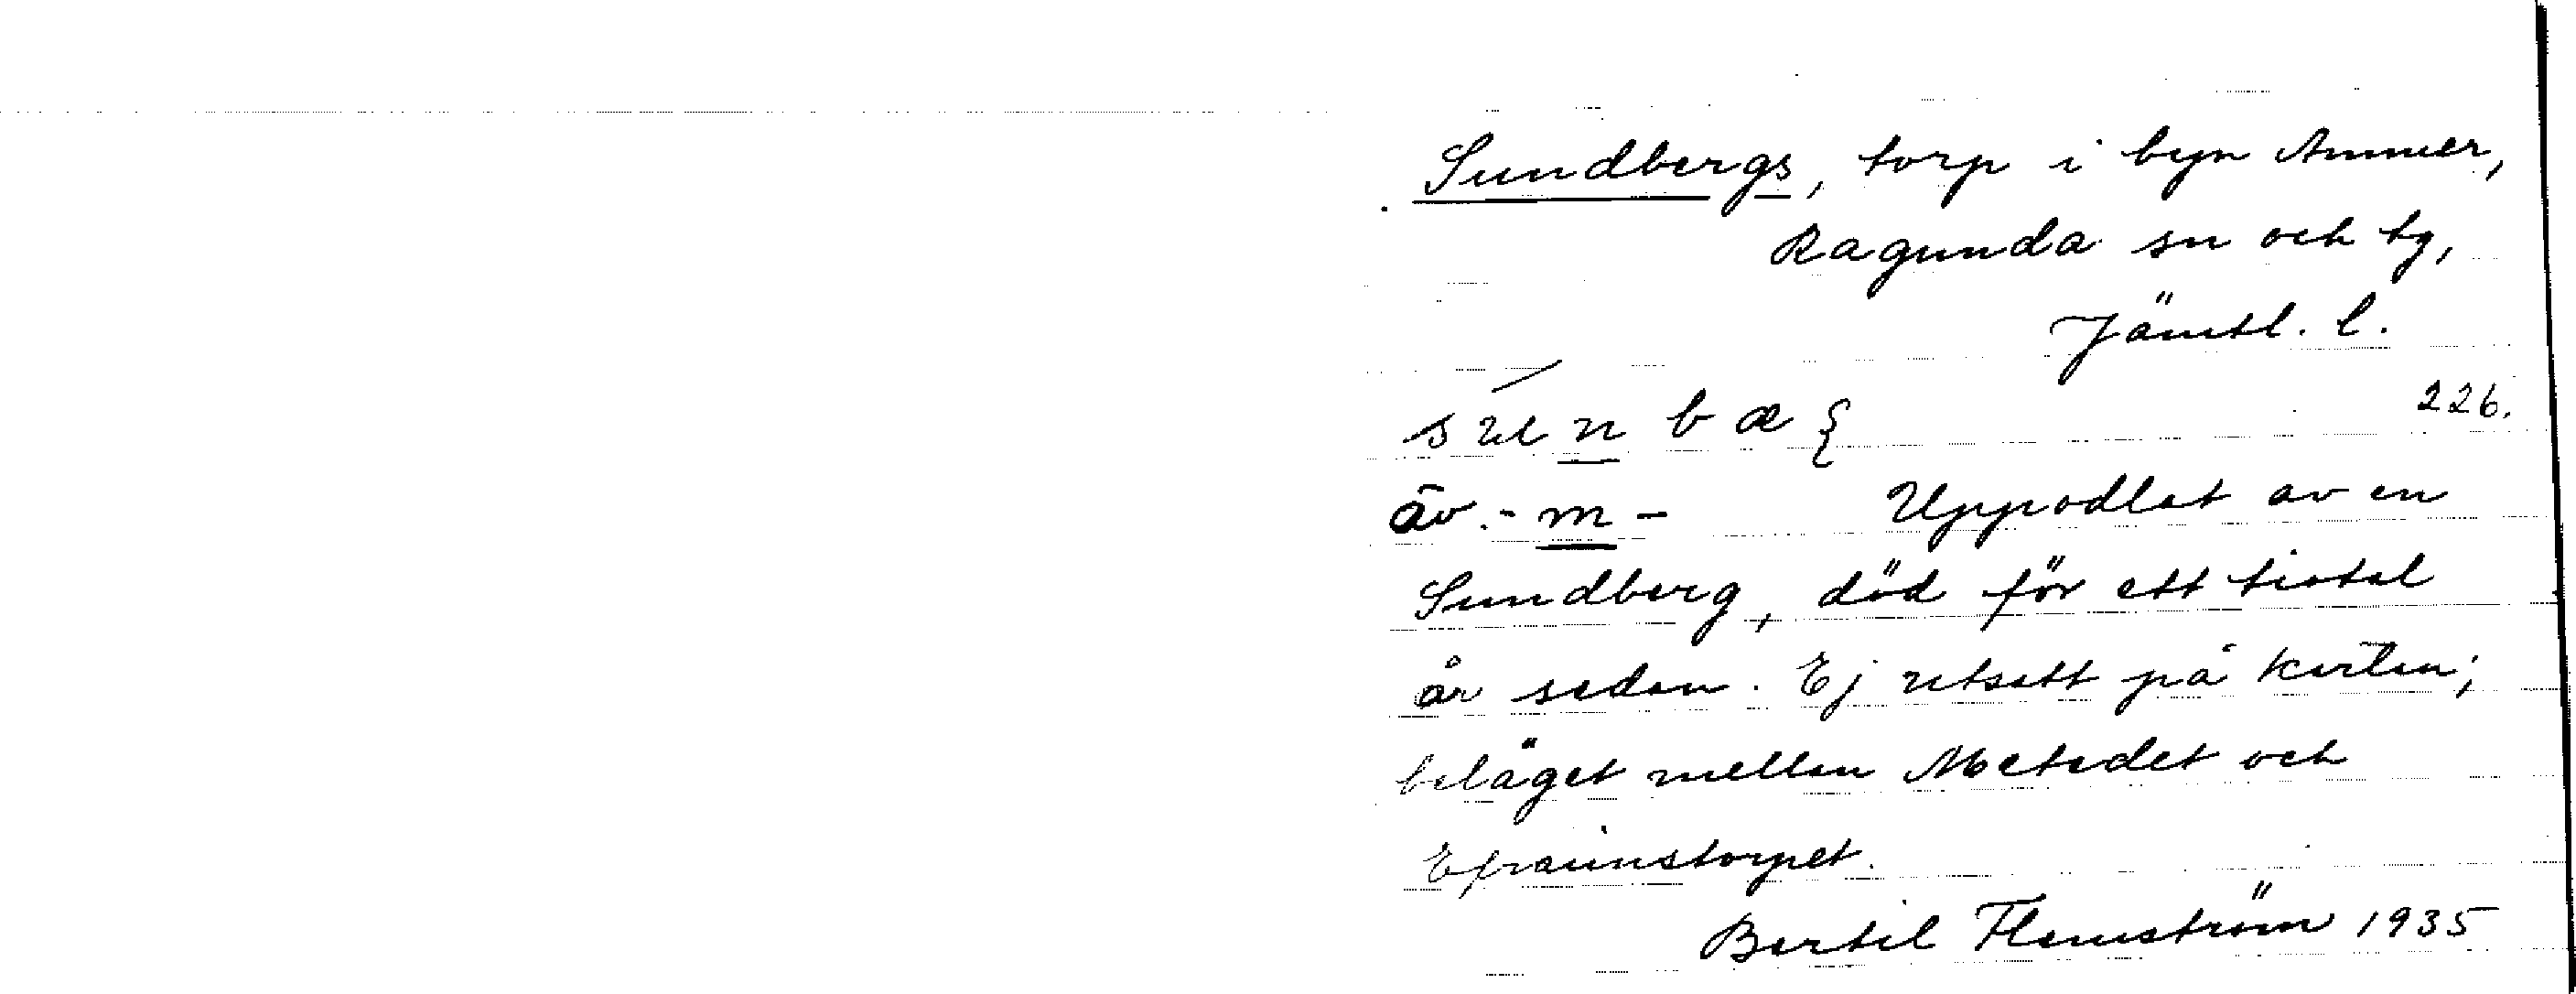 Sundbergs, torp i byn Ammer,
Ragunda sn och tg,
Jämtl. l.
226.
äv. - m -
Uppodlat av en
Sundberg, död för ett tiotal
år sedan. Ej utsatt på kartan;
beläget mellan Metedet och
Efraimstorpet.
Bertil Flemström 1935